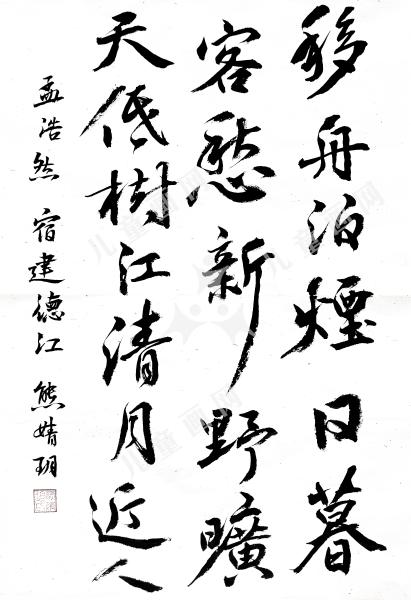 移舟泊煙日暮
客愁新野曠
天低樹江清月近人
孟浩然 宿建德江 熊婧玥
儿童画网